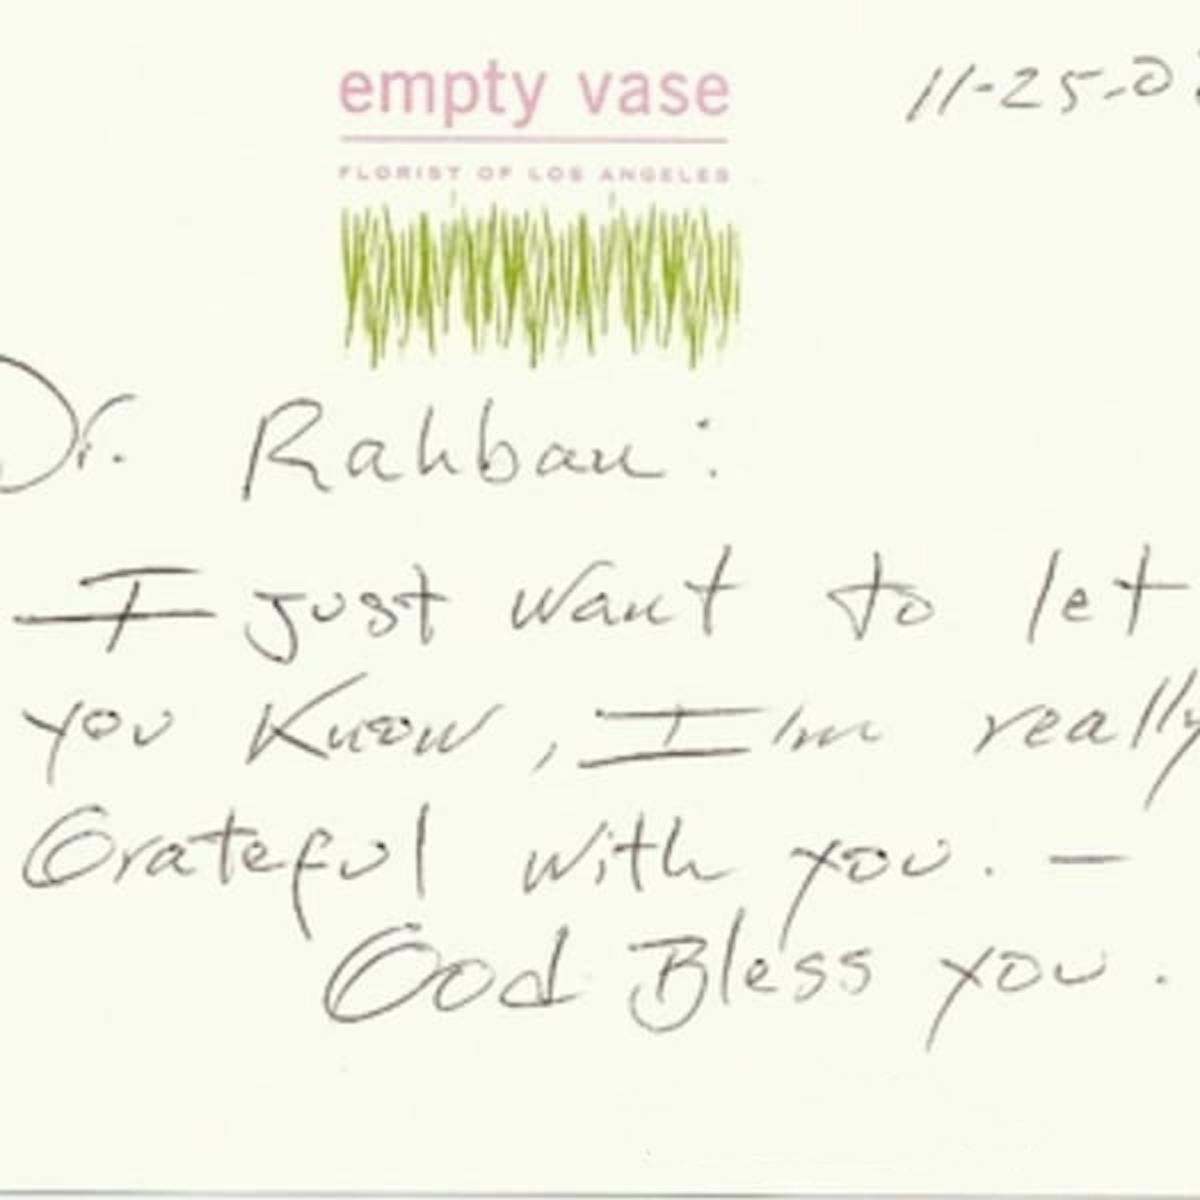 empty vase
11-25-0
FLORIST OF LOS ANGELES
Dr. Rahban:
I just want to let
you Know, I'm really
Grateful with you. —
God Bless you.